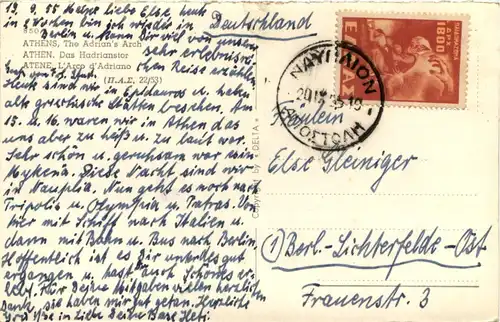 19. 9. 55 Meine liebe Else, heut in
2 Wochen bin ich wieder in
Berlin u. kann Dir viel von unserer
sehr erlebnis-
reichen Reise erzählen.
ATHENS, The Adrian's Arch
ATHEN. Das Hadrianstor
ATENE. L'Arco d'Adriano
(Π.Δ.Σ. 22/53)
Heute sind wir in Epidauros u. haben
alte griechische Stätten besehen. Am
15. u. 16. waren wir in Athen das
uns aber zu heiß u. zu laut war.
Sehr schön u. geruhsam war es in
Mykenä. Diese Nacht sind wir
in Nauplia. Nun geht es noch nach
Tripolis u. Olympia u. Patras. Von
hier mit Schiff nach Italien u.
dann mit Bahn u. Bus nach Berlin.
Hoffentlich ist es Dir unterdes gut
ergangen u. hast auch Schönes er-
lebt. Für Deine
Dank, sie haben mir gut getan. Herzliche
in Liebe Deine Base Heti.
Copyright by "DELTA"
Deutschland
1800
ΕΛΛΑΣ
ΝΑΥΠΛΙΟΝ
ΑΠΟΣΤΟΛΗ
Fräulein
Else Gleiniger
(1) Berl.-Lichterfelde-Ost
Frauenstr. 3